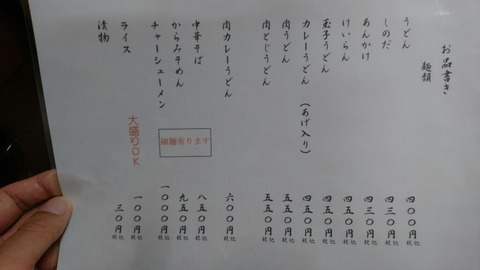 お品書き
麺類
うどん 四〇〇円 税込
しのだ 四三〇円 税込
あんかけ 四三〇円 税込
けいらん 四五〇円 税込
玉子うどん 四五〇円 税込
カレーうどん（あげ入り） 四五〇円 税込
肉うどん 五五〇円 税込
肉とじうどん 五五〇円 税込
肉カレーうどん 六〇〇円 税込
中華そば 八五〇円 税込
からみそめん 九五〇円 税込
チャーシューメン 一〇〇〇円 税込
細麺有ります
ライス 一〇〇円 税込
大盛りOK
漬物 三〇円 税込